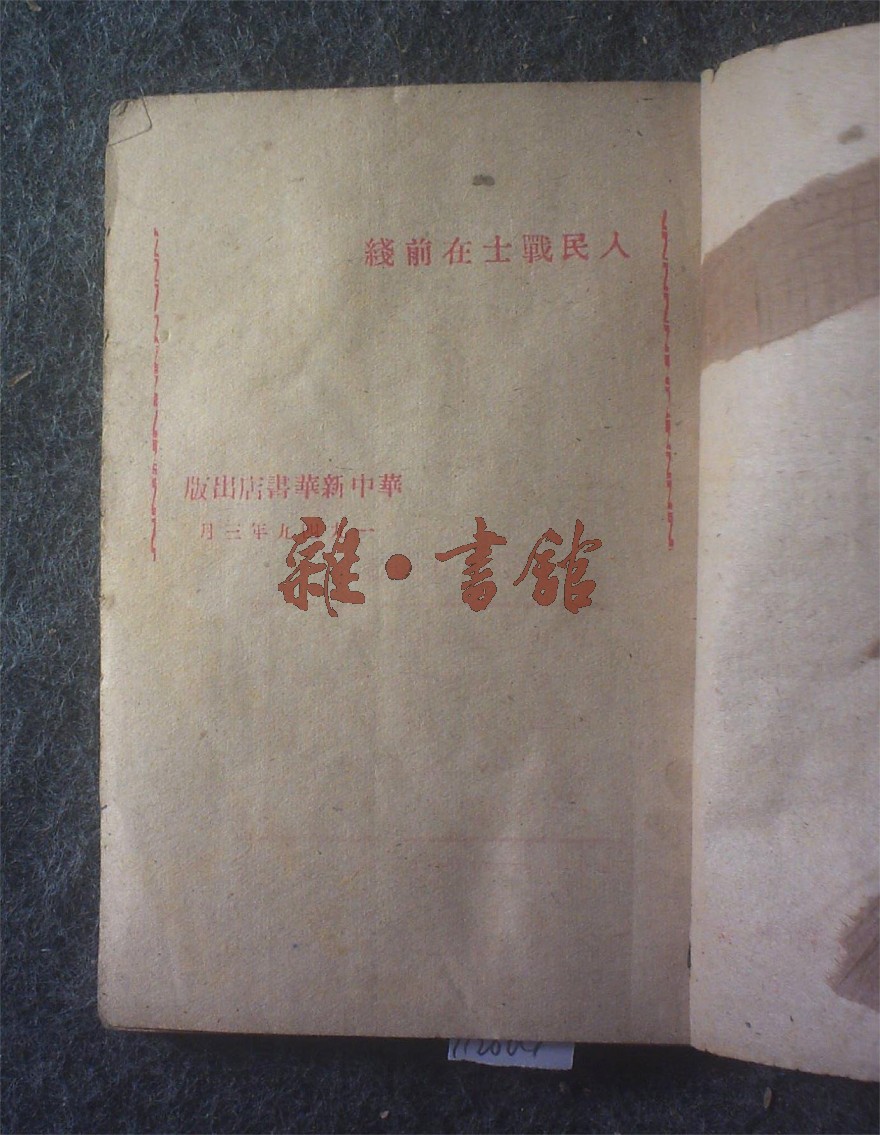 人民戰士在前綫
華中新華書店出版
一九四九年三月
雜·書館